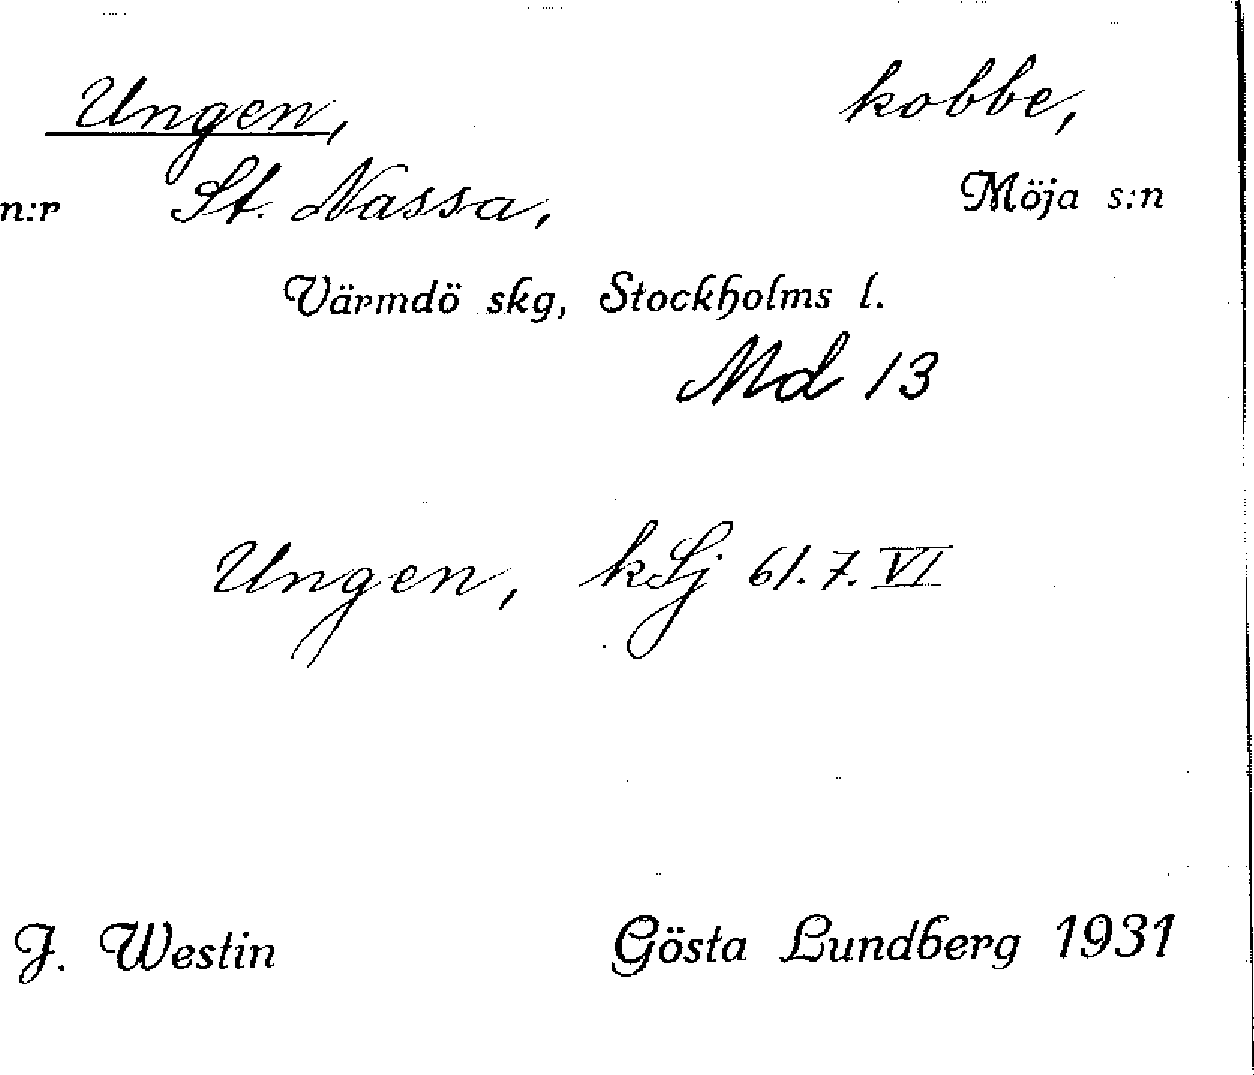 Ungen, kobbe,
n:r St. Nassa, Möja s:n
Värmdö skg, Stockholms l.
Md 13
Ungen, kLj 61.7.VI
J. Westin Gösta Lundberg 1931